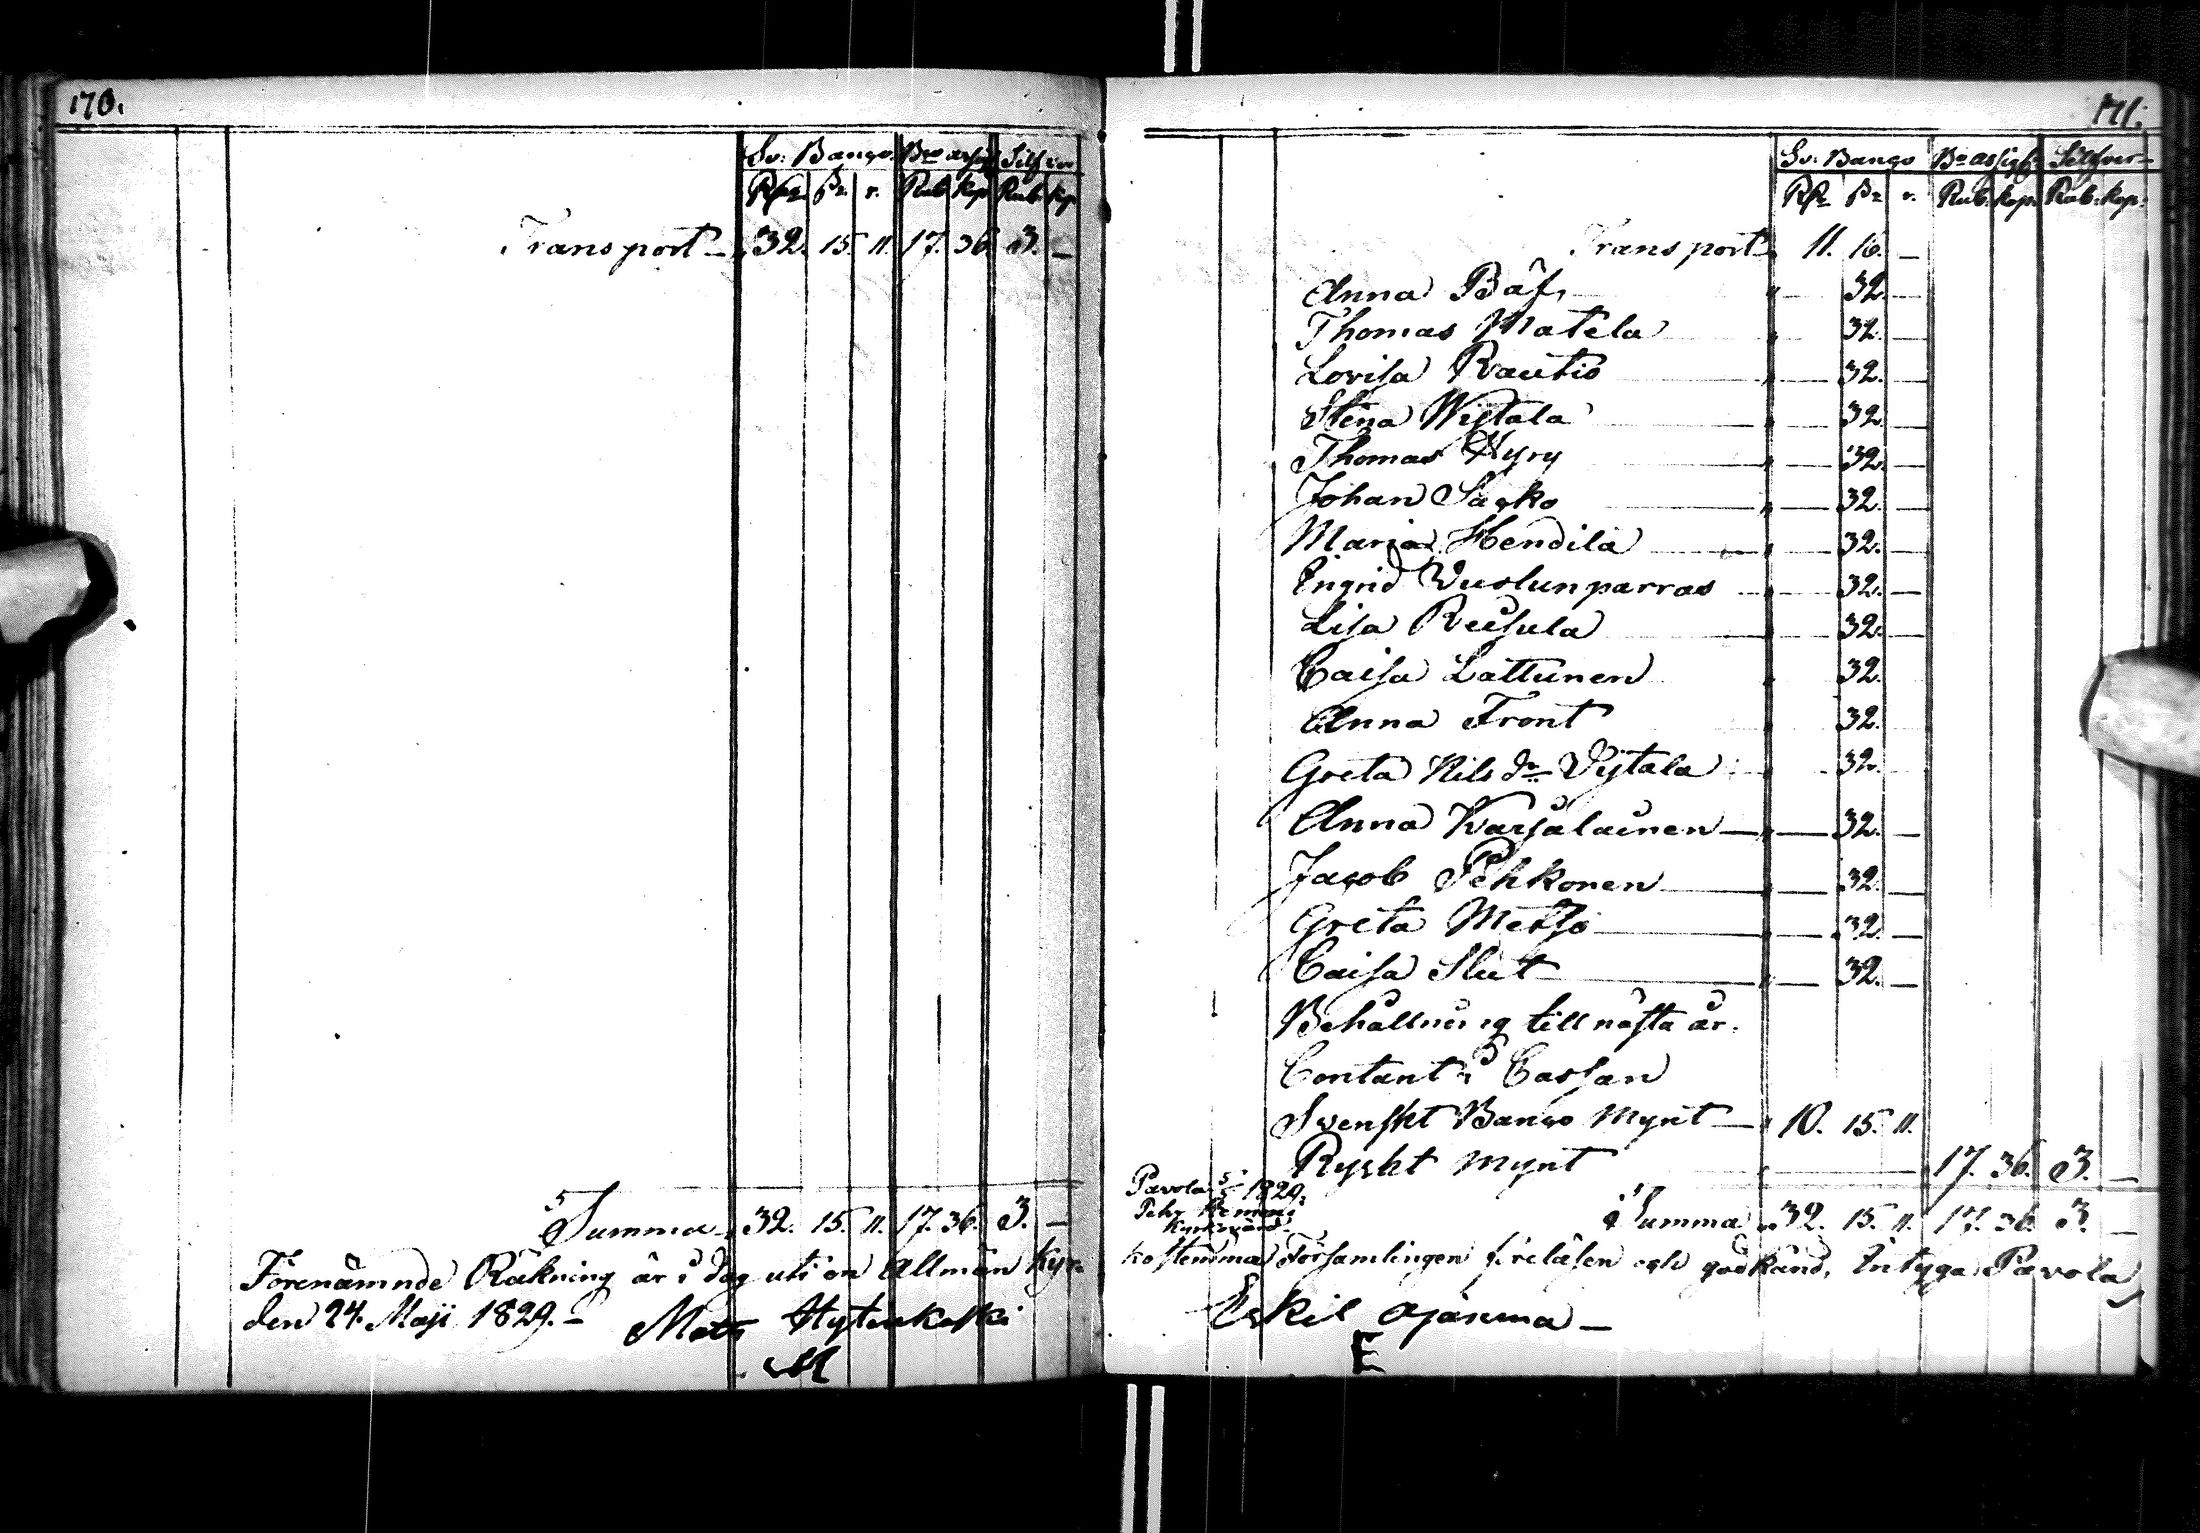 170.
Sv: Banco. Bco assig Silfver
Rdr ßr r. Rub kop Rub: kop
Transport 32. 15. 11. 17. 36. 3. —
Summa 32. 15. 11. 17. 36. 3. —
Förenämnde Räkning är i dag uti en Allmän Kyr-
den 24. Maji 1829. —
Mats Hyttinkoski
M
171.
Sv: Banco Bco assig: Silfver
Rdr ßr r. Rub: kop. Rub: kop:
Transport 11. 16. —
Anna Bäf " — 32. —
Thomas Matela " 32. —
Lovisa Rautio " — 32. —
Stina Wijtala " — 32. —
Thomas Hyry " — 32. —
Johan Sacko " — 32. —
Maria Hendilä " — 32. —
Ingrid Vuolunparras " 32. —
Lisa Ruusula " 32. —
Caisa Lattunen " 32.
Anna Front " 32.
Greta Nils dr Vijtala 32.
Anna Karjalainen " — 32. —
Jacob Pehkonen " 32. —
Greta Metso " 32. —
Caisa Slut " — 32. —
Behållning till nästa år.
Contant i Cassan
Svenskt Banco Mynt — 10. 15. 11.
Ryskt mynt 17. 36. 3. —
Pavola 1829.
Pehr
Kyrkovärd
Summa 32. 15. 11. 17. 36. 3. —
kostemma Församlingen föreläsen och godkänd, intyga Pavola
Eskil Ojanma —
E